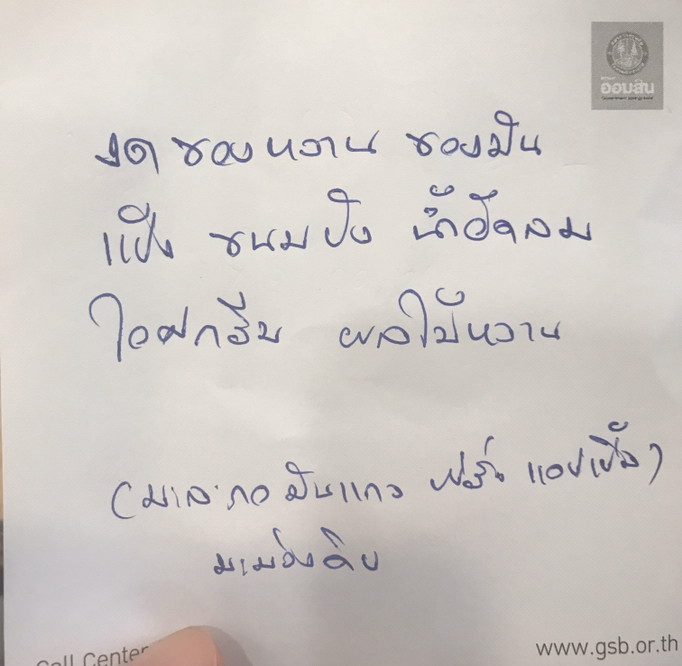 ออมสิน
งด ของหวาน ของมัน
แป้ง ขนมปัง น้ำอัดลม
ไอศกรีม ผลไม้หวาน
(มะละกอ มันแกว ฝรั่ง แอปเปิ้ล)
มะม่วงดิบ
Call Center
www.gsb.or.th